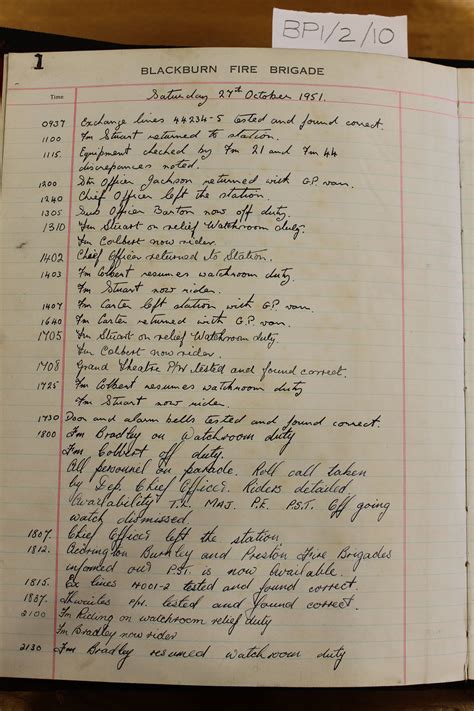 BP1/2/10
1
BLACKBURN FIRE BRIGADE
Time
Saturday 27th October 1951.
0937 Exchange lines 44234-5 tested and found correct.
1100 Fm Stuart returned to station.
1115. Equipment checked by Fm 21 and Fm 44
discrepances noted.
1200 Stn Officer Jackson returned with G.P. van.
1240 Chief Officer left the station.
1305 Sub Officer Barton now off duty.
1310 Fm Stuart on relief Watchroom duty.
Fm Colbert now rider.
1402 Chief Officer returned to Station.
1403 Fm Colbert resumes watchroom duty
Fm Stuart now rider.
1407 Fm Carter left station with G.P. van.
1640 Fm Carter returned with G.P. van.
1705 Fm Stuart on relief Watchroom duty
Fm Colbert now rider.
1708 Grand Theatre P/H tested and found correct.
1725 Fm Colbert resumes watchroom duty
Fm Stuart now rider.
1730 Door and alarm bells tested and found correct.
1800 Fm Bradley on Watchroom duty
Fm Colbert off duty.
All personnel on parade. Roll call taken
by Dep. Chief Officer. Riders detailed
Availability T.L. MAJ. P.E. P.S.T. Off going
watch dismissed.
1807. Chief Officer left the station
1812. Accrington Burnley and Preston Fire Brigades
informed our P.S.T. is now available.
1815. Ex lines 4001-2 tested and found correct.
1837. Thwaites P/H. tested and found correct.
2100 Fm Riding on watchroom relief duty
Fm Bradley now rider
2130 Fm Bradley resumed watchroom duty